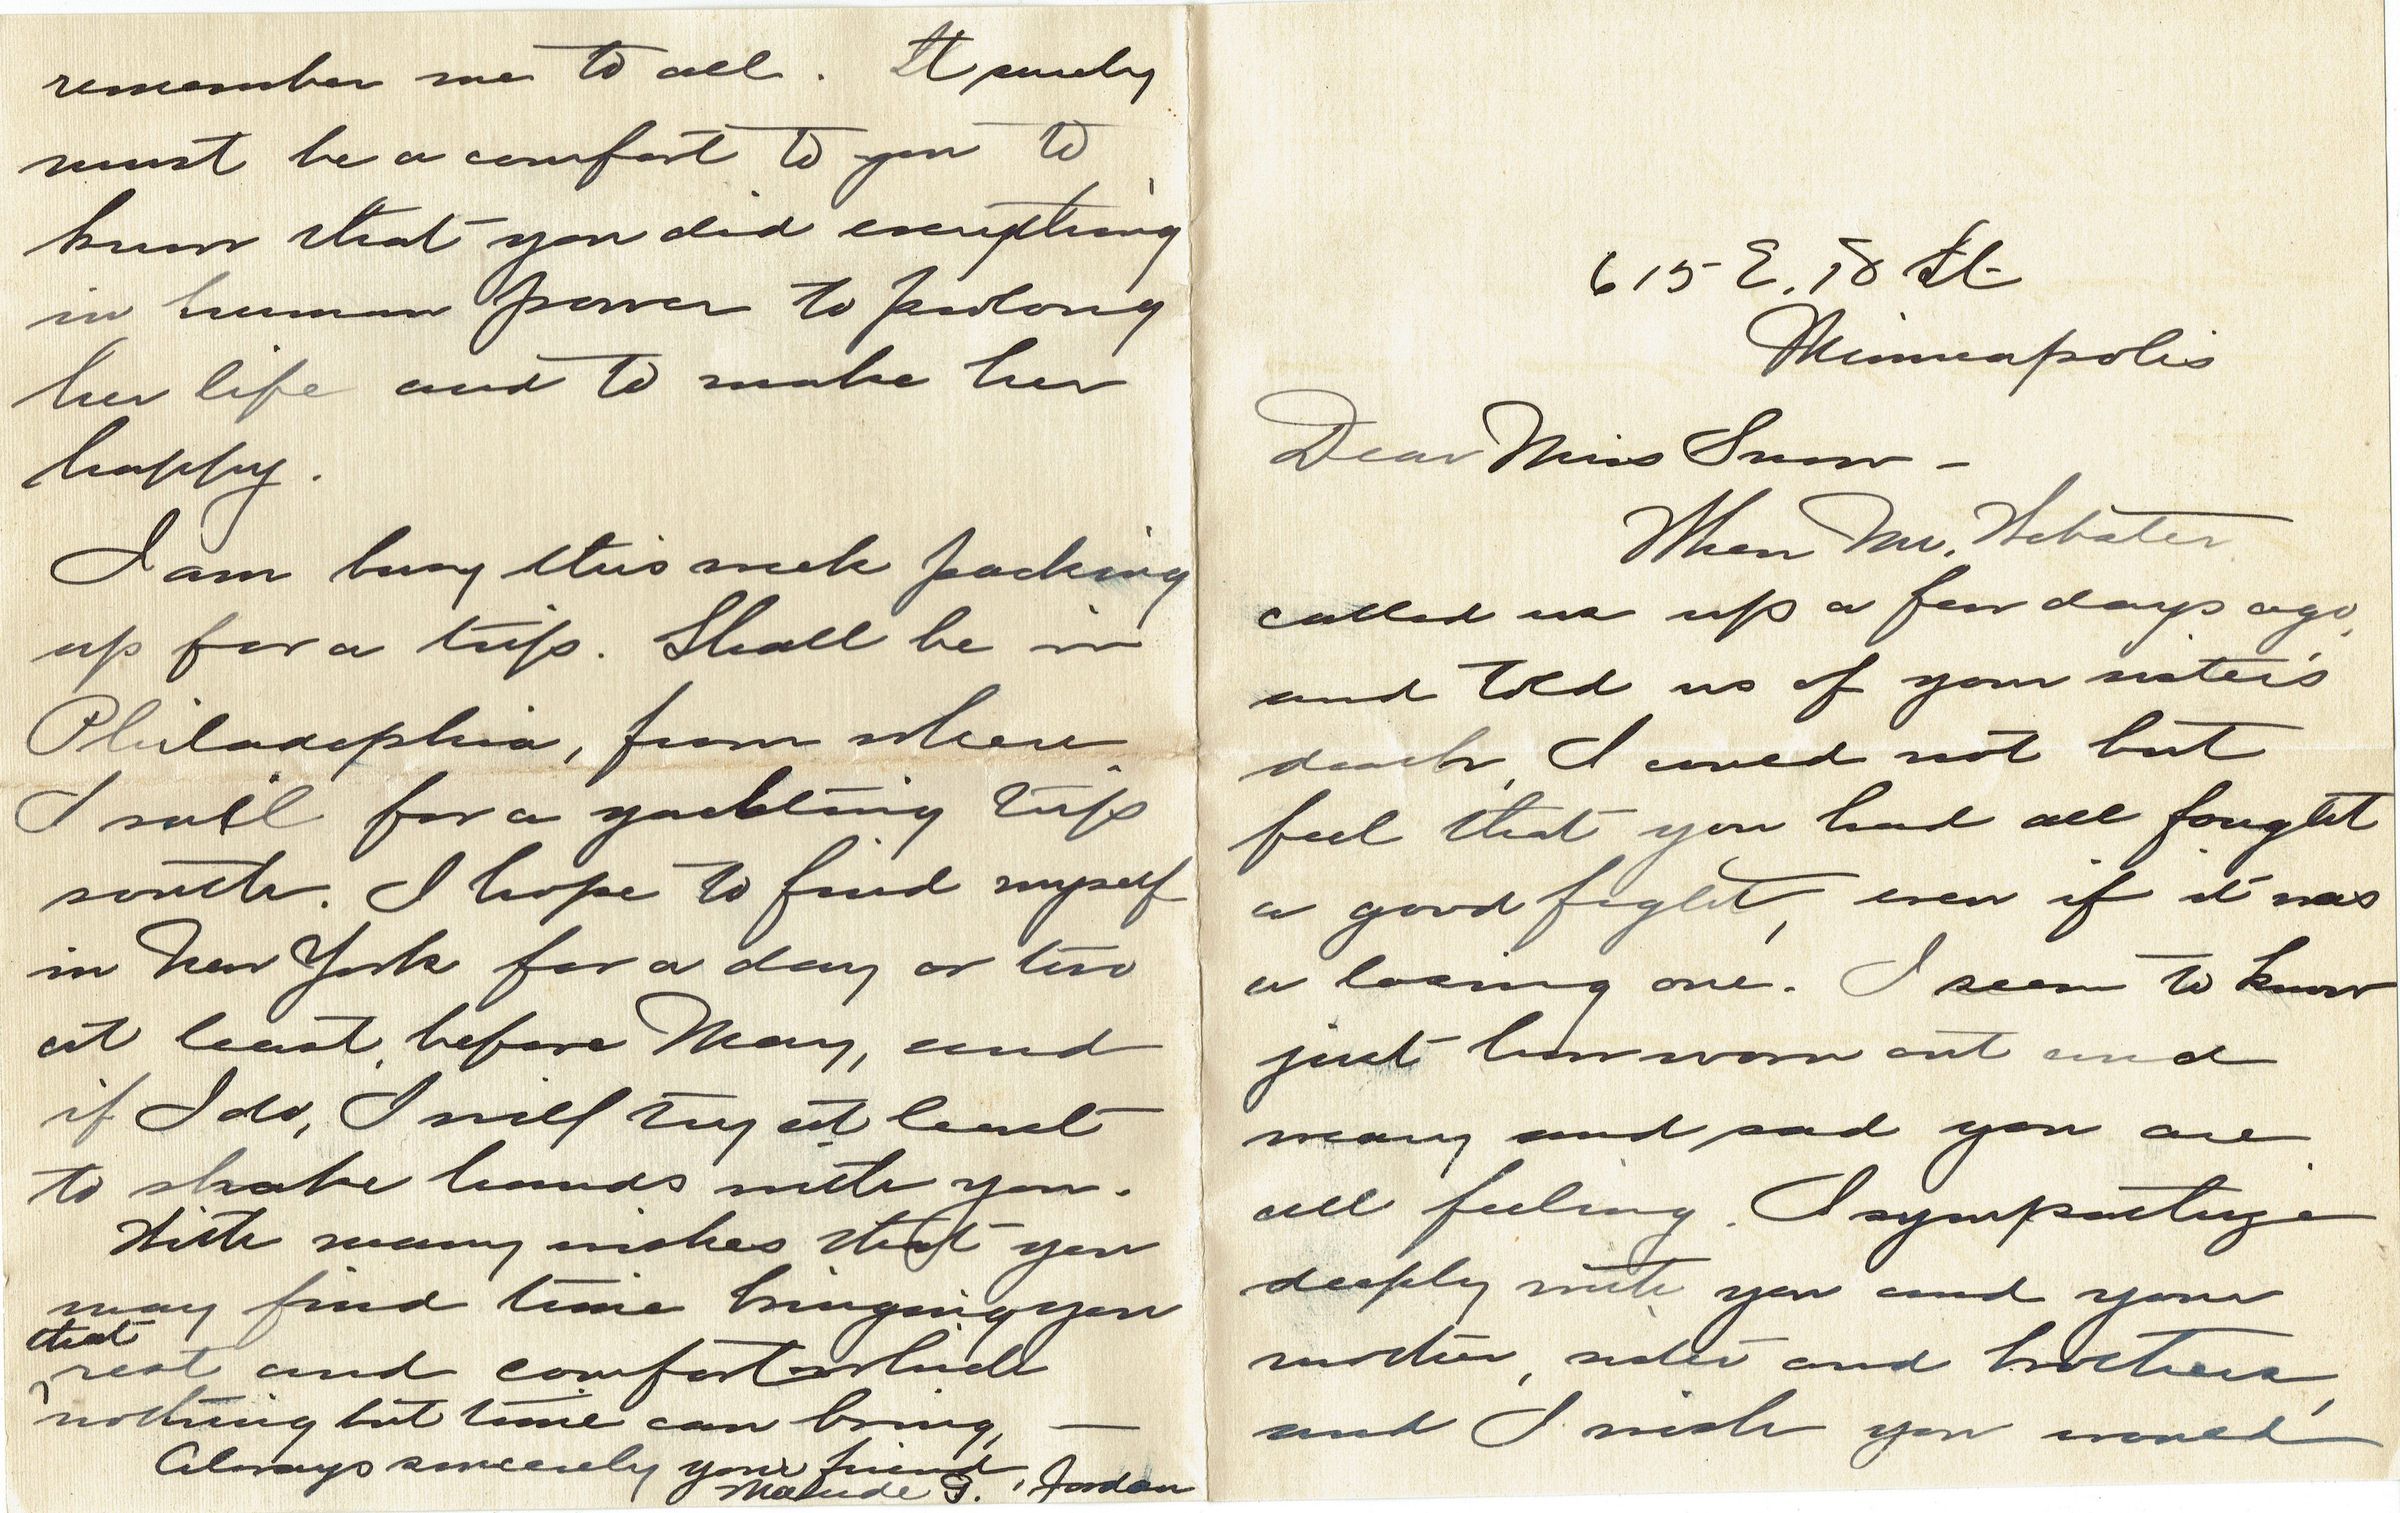 615 E. 18 St.
Minneapolis
Dear Miss Snow -
When Mr. Webster
called us up a few days ago,
and told us of your sister's
death, I could not but
feel that you had all fought
a good fight, even if it was
a losing one. I seem to know
just how worn out and
weary and sad you are
all feeling. I sympathize
deeply with you and your
mother, sister and brothers,
and I wish you would
remember me to all. It surely
must be a comfort to you to
know that you did everything
in human power to prolong
her life and to make her
happy.
I am busy this week packing
up for a trip. Shall be in
Philadelphia, from where
I sail for a yachting trip
south. I hope to find myself
in New York for a day or two
at least, before May, and
if I do, I will try at least
to shake hands with you.
With many wishes that you
may find time bringing you
that
rest and comfort which
nothing but time can bring, —
Always sincerely your friend,
Maude G. Jordan